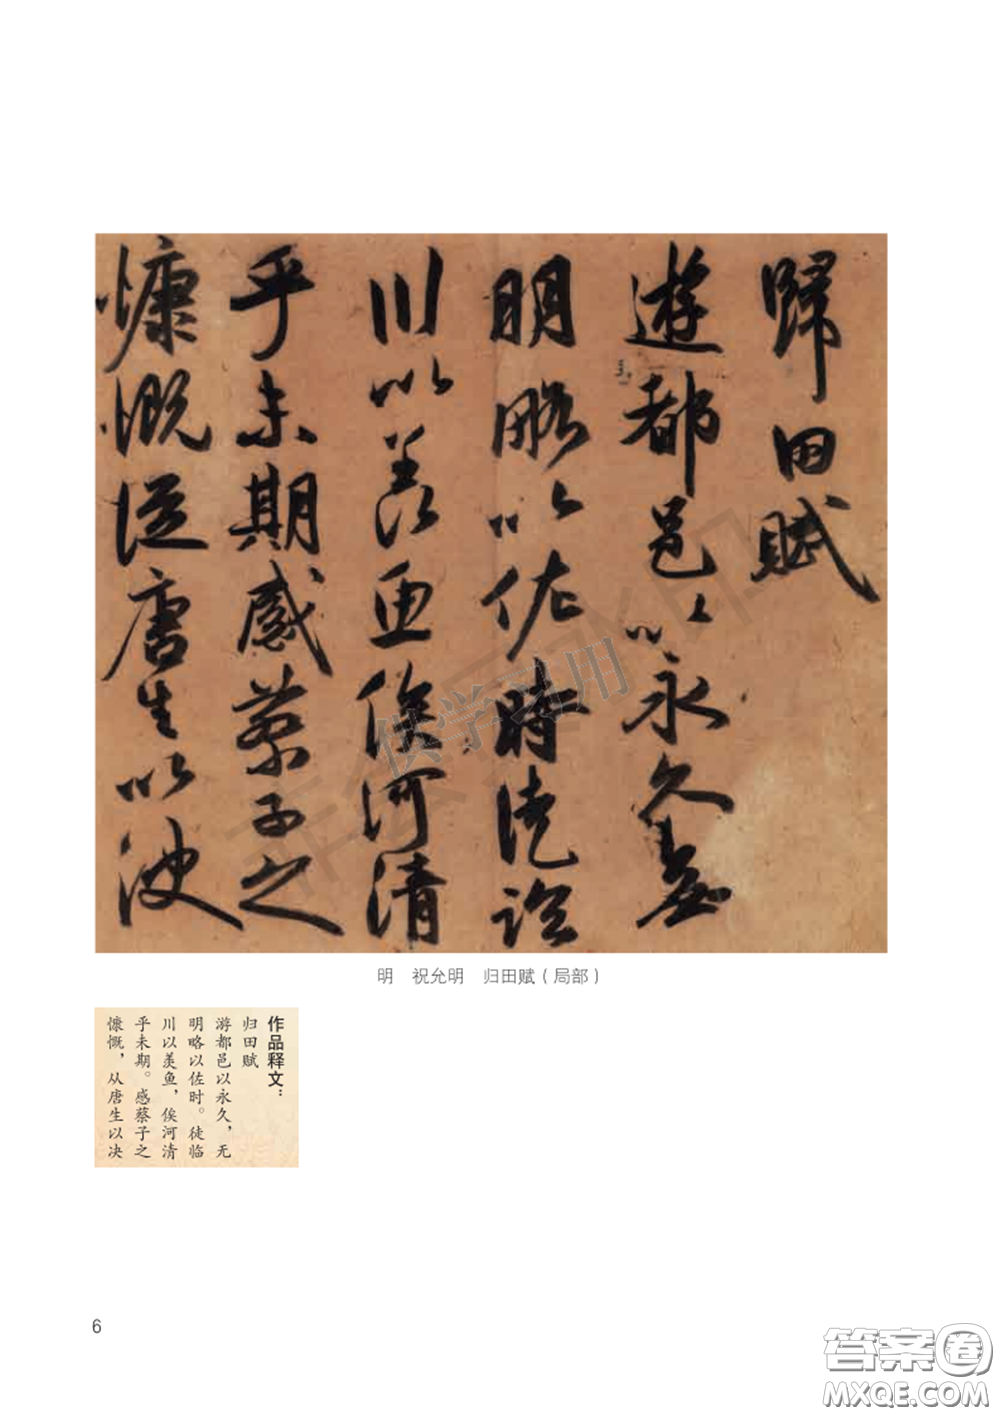 歸田賦
遊都邑以永久無
明略以佐時徒臨
川以羨魚俟河清
乎未期感蔡子之
慷慨從唐生以決
明 祝允明 归田赋（局部）
作品释文：
归田赋
游都邑以永久，无
明略以佐时。徒临
川以羡鱼，俟河清
乎未期。感蔡子之
慷慨，从唐生以决
供学习用
6
答案圈
MXQE.COM